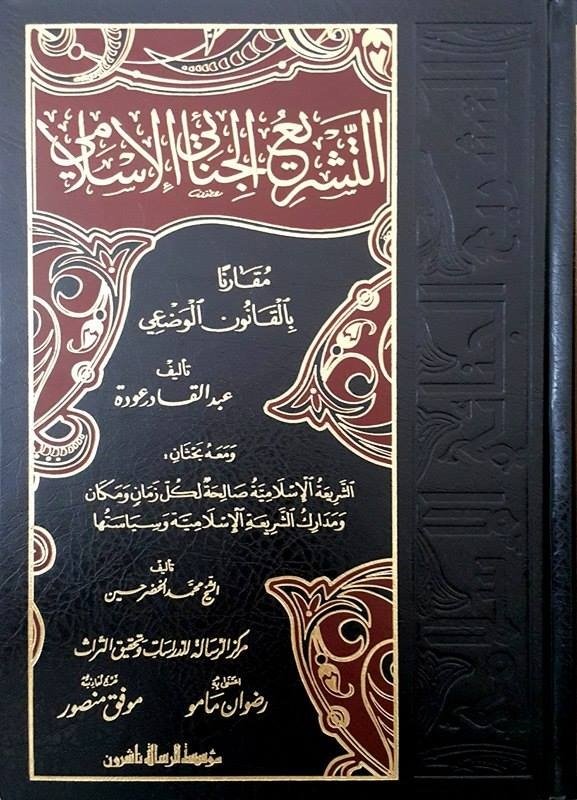 التَّشريع الجنائي الإسلامي
مُقَارنًا
بِالْقَانُون الْوَضْعِي
تأليف
عبد القادر عودة
وَمَعَهُ بَحْثَانِ:
الشَّرِيعَةُ الْإِسْلَامِيَّةُ صَالِحَةٌ لِكُلِّ زَمَانٍ وَمَكَان
وَمَدَارِكُ الشَّرِيعَةِ الْإِسْلَامِيَّة وَسِيَاسَتُها
تأليف
الشيخ محمد الخضر حسين
مركز الرسالة للدراسات وتحقيق التراث
اعتنى به
رضوان مامو
موفق منصور
مؤسسة الرسالة ناشرون
التشريع الجنائي الإسلامي